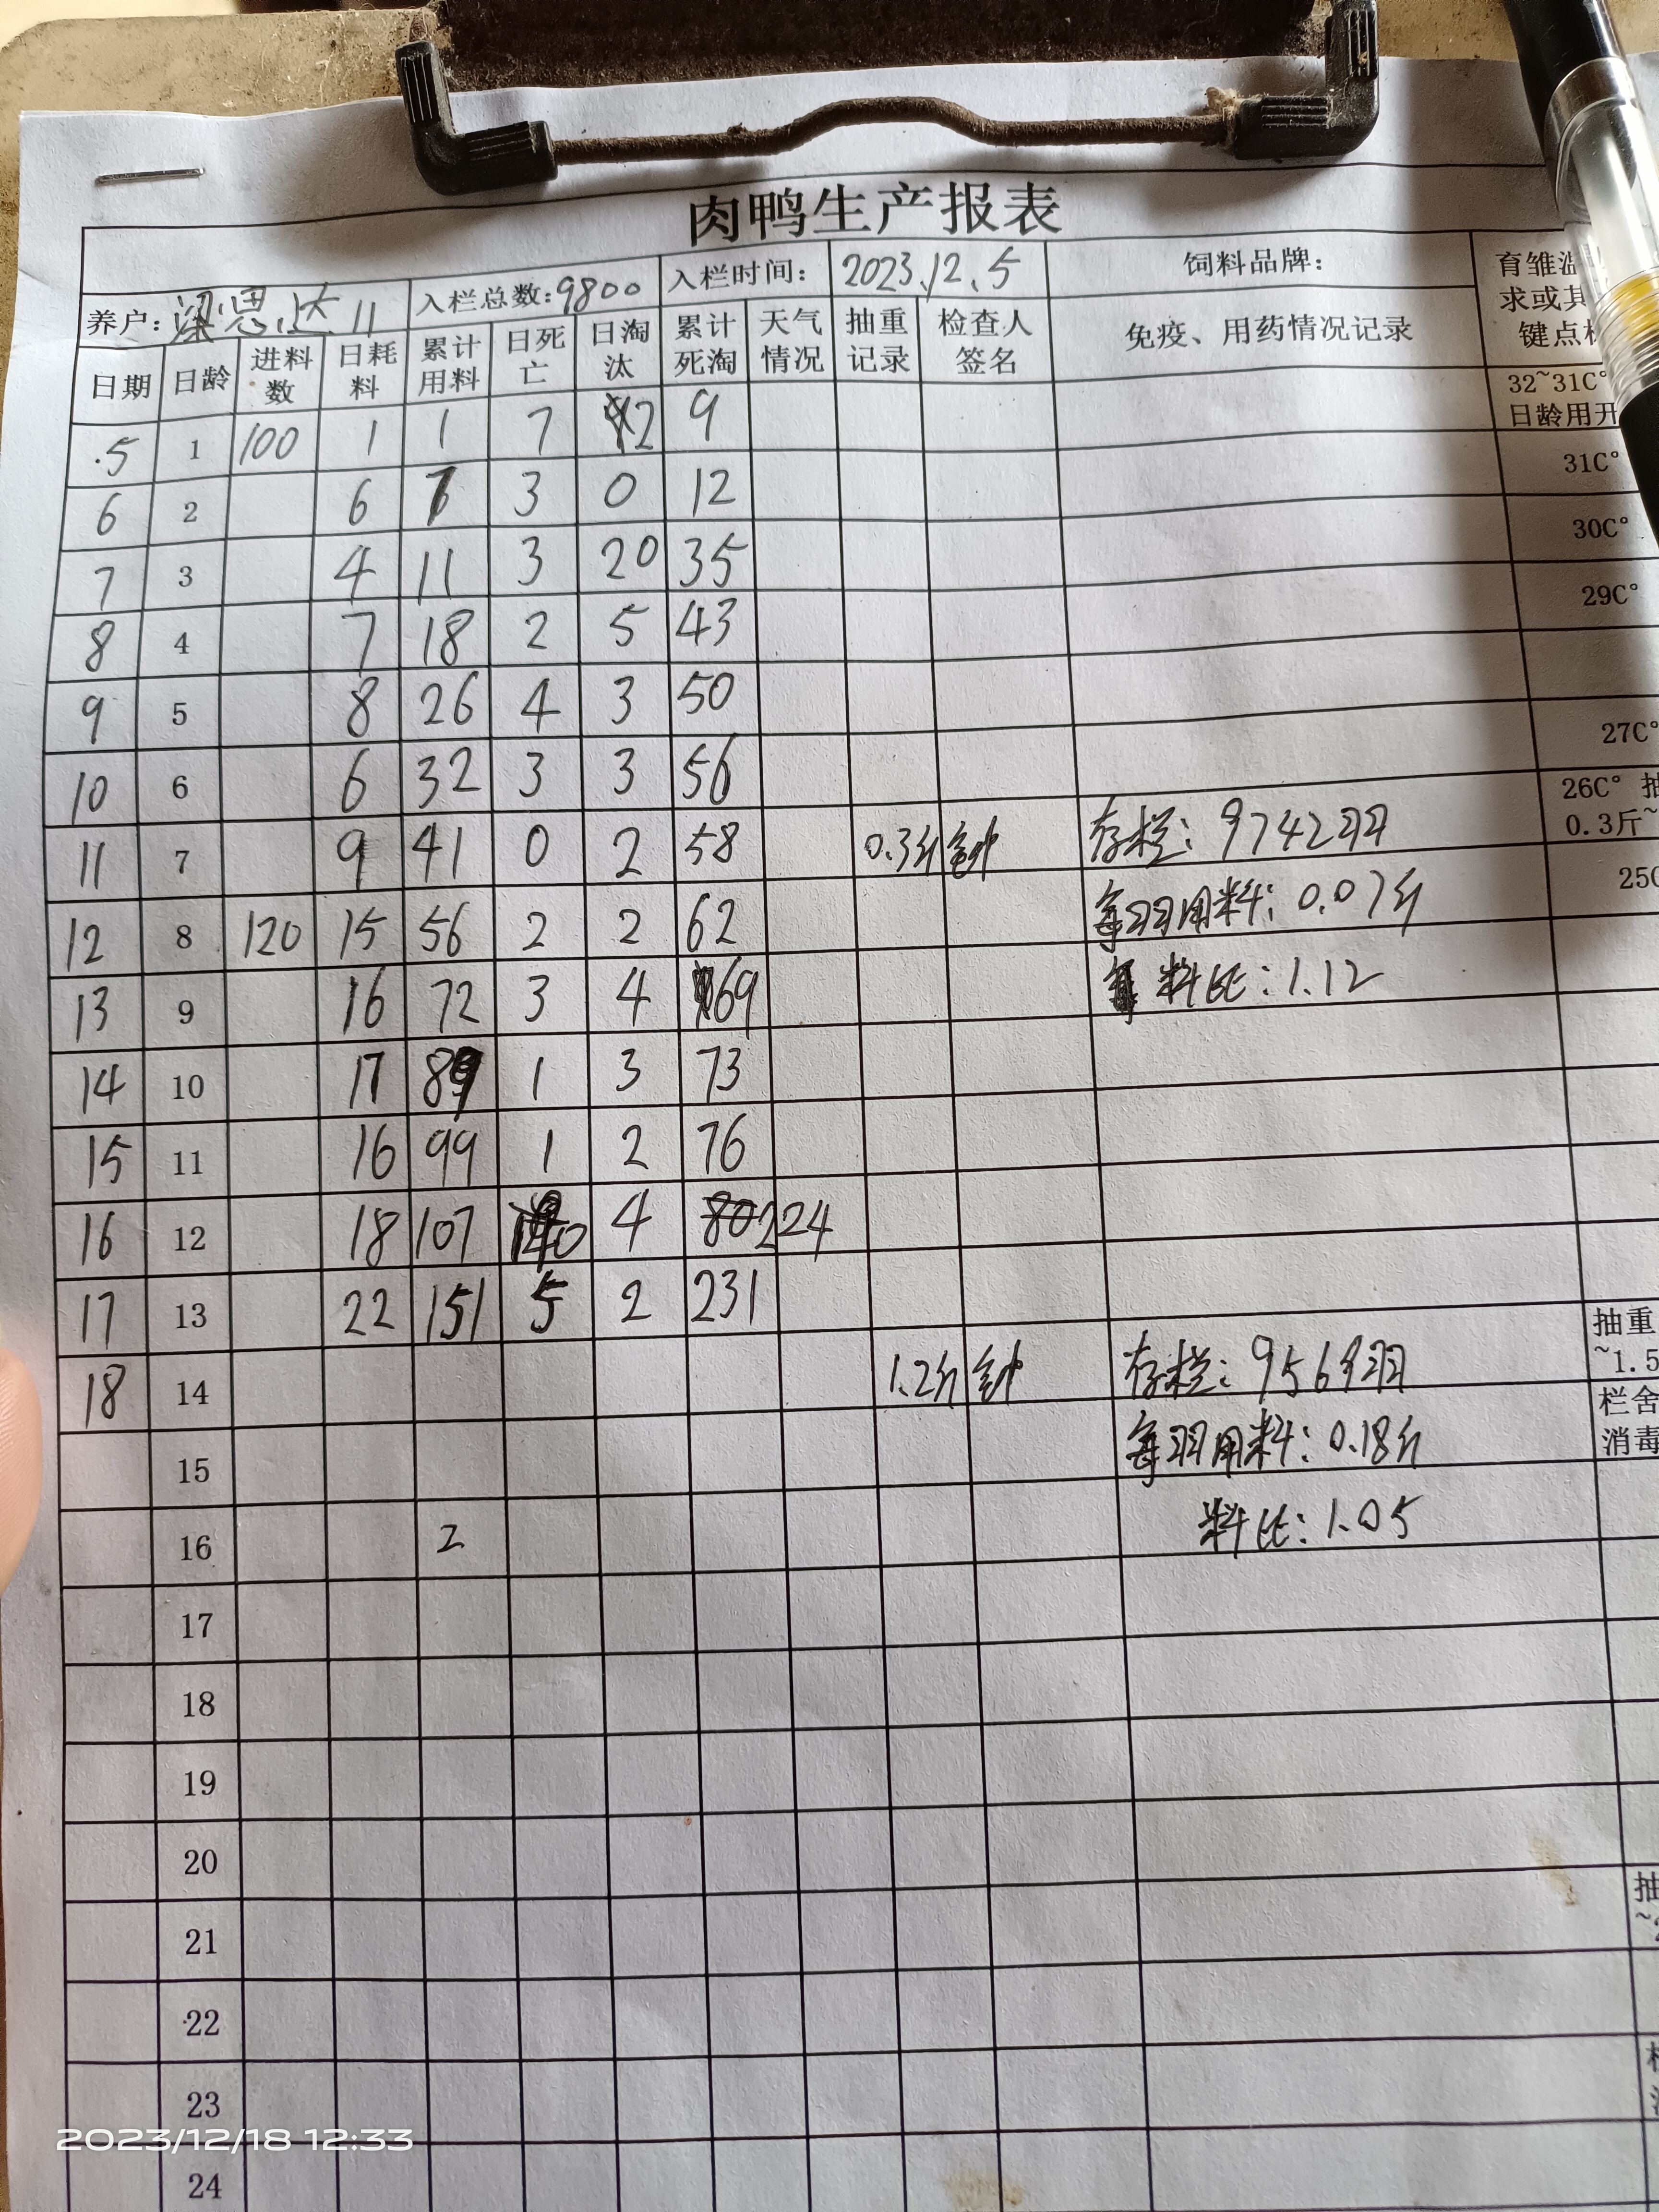 肉鸭生产报表
养户: 梁思达 11 入栏总数:9800 入栏时间: 2023.12.5 饲料品牌:
日期 日龄 进料数 日耗料 累计用料 日死亡 日淘汰 累计死淘 天气情况 抽重记录 检查人签名 免疫、用药情况记录
育雏温
求或其
键点
5 1 100 1 1 7 2 9 32~31C°
日龄用开
6 2 6 7 3 0 12 31C°
7 3 4 11 3 20 35 30C°
8 4 7 18 2 5 43 29C°
9 5 8 26 4 3 50
10 6 6 32 3 3 56 27C°
11 7 9 41 0 2 58 0.3斤 钟 存栏: 9742羽 26C° 抽
0.3斤~
12 8 120 15 56 2 2 62 每羽用料: 0.07斤 25C
13 9 16 72 3 4 69 料比: 1.12
14 10 17 89 1 3 73
15 11 16 99 1 2 76
16 12 18 107 4 80 224
17 13 22 151 5 2 231
18 14 1.2斤 钟 存栏: 9569羽 抽重
~1.5
15 每羽用料: 0.18斤 栏舍
消毒
16 2 料比: 1.05
17
18
19
20
21 抽
22
23
24
2023/12/18 12:33